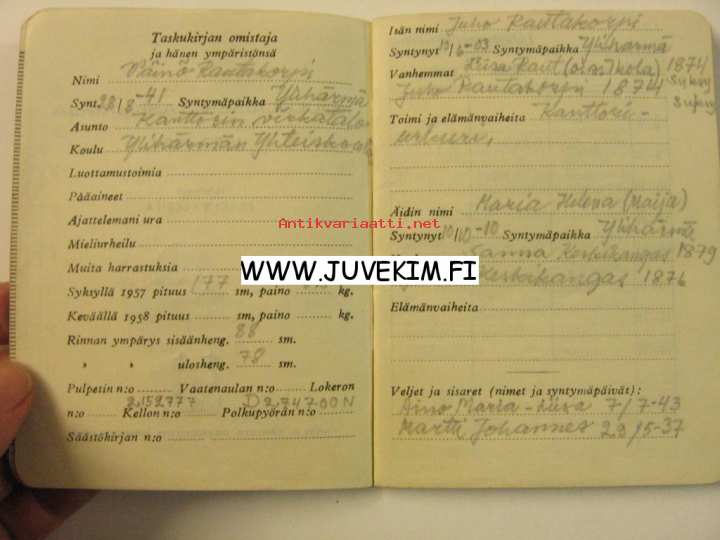 Taskukirjan omistaja
ja hänen ympäristönsä
Nimi Väinö Rautakorpi
Synt. 28/8 -41 Syntymäpaikka Ylihärmä
Asunto Kanttorin virkatalo
Koulu Ylihärmän Yhteiskoulu
Luottamustoimia
Pääaineet
Ajattelemani ura
Mieliurheilu
Muita harrastuksia
Syksyllä 1957 pituus 177 sm, paino kg.
Keväällä 1958 pituus sm, paino kg.
Rinnan ympärys sisäänheng. 88 sm.
» » ulosheng. 78 sm.
Pulpetin n:o Vaatenaulan n:o Lokeron
n:o 2152777 Kellon n:o Polkupyörän n:o D274700N
Säästökirjan n:o
Isän nimi Juho Rautakorpi
Syntynyt 15/6-03 Syntymäpaikka Ylihärmä
Vanhemmat Liisa Raut (o.s. Ikola) 1874
Juho Rautakorpi 1874
Toimi ja elämänvaiheita Kanttori-
urkuri.
Äidin nimi Maria Helena (Maija)
Syntynyt 10/10-10 Syntymäpaikka Ylihärmä
Sanna Keskikangas 1879
Keskikangas 1876
Elämänvaiheita
Veljet ja sisaret (nimet ja syntymäpäivät):
Aino Maria-Liisa 7/7-43
Martti Johannes 29/5-37
Antikvariaatti.net
WWW.JUVEKIM.FI